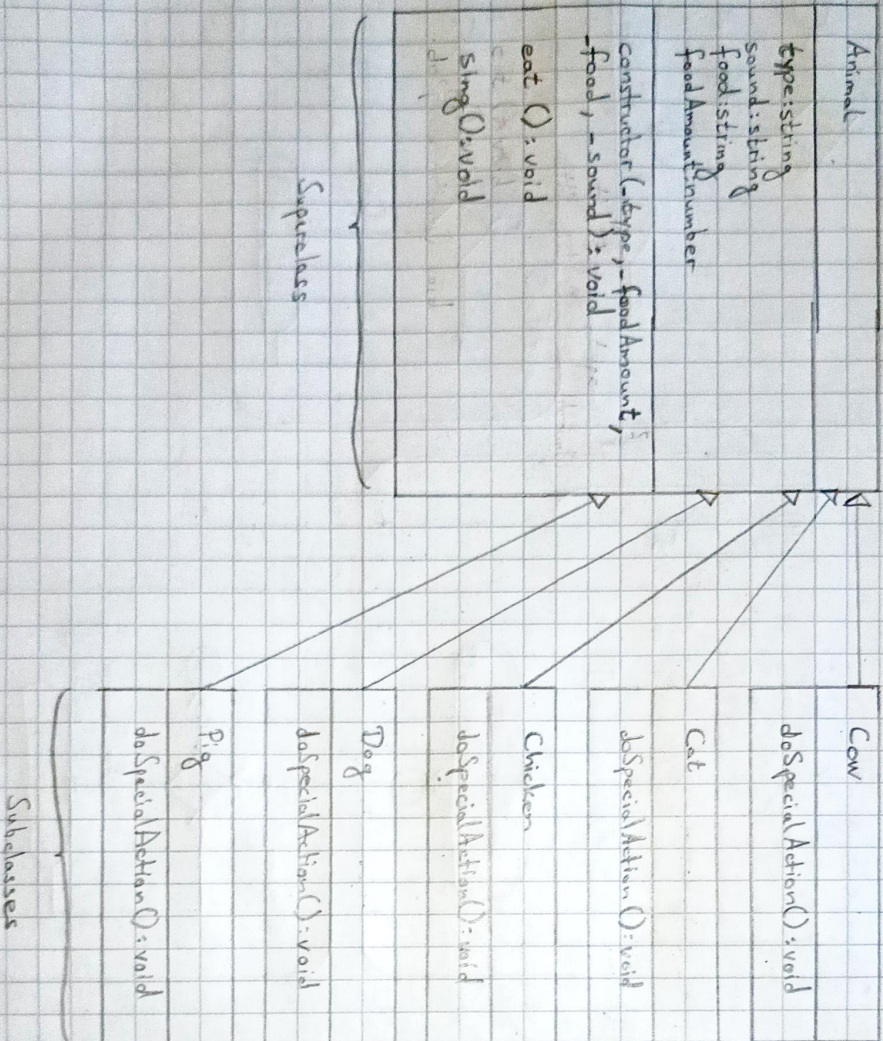 Animal
type:string
sound:string
food:string
foodAmount:number
constructor(-type, -foodAmount,
-food, -sound):void
eat ():void
sing():void
Superclass
Cow
doSpecialAction():void
Cat
doSpecialAction():void
Chicken
doSpecialAction():void
Dog
doSpecialAction():void
Pig
doSpecialAction():void
Subclasses